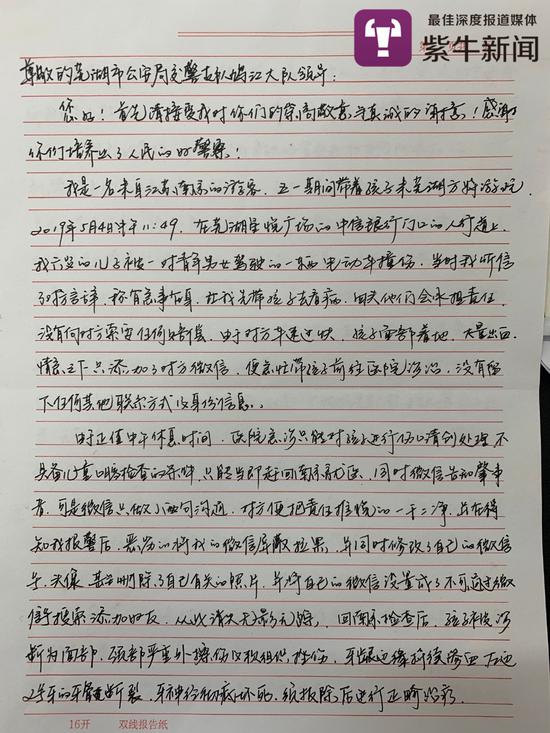 最佳深度报道媒体
紫牛新闻
尊敬的芜湖市公安局交警支队鸠江大队领导:
您好!首先请接受我对你们的崇高敬意与真诚的谢意!感谢
你们培养出了人民的好警察!
我是一名来自江苏南京的游客,五一期间带着孩子来芜湖方特游玩,
2019年5月4日中午11:49,在芜湖星悦广场的中信银行门口的人行道上,
我六岁的儿子被一对青年男女驾驶的一辆电动车撞伤,当时我听信
了对方言辞,称有急事在身,让我先带孩子去看病,回头他们会承担责任,
没有向对方索要任何赔偿。由于对方车速过快,孩子面部着地,大量出血,
情急之下只添加了对方微信,便急忙带孩子前往医院诊治,没有留
下任何其他联系方式及身份信息。
由于正值中午休息时间,医院急诊只能对孩子进行伤口清创处理,不
具备儿童口腔检查的条件,只能当即赶回南京就医,同时微信告知肇事
者,可是微信只做了两句沟通,对方便把责任推脱的一干二净,并在得
知我报警后,恶劣的将我的微信屏蔽拉黑,并同时修改了自己的微信
号、头像,甚至删除了自己有关的照片,并将自己的微信设置成了不可通过微
信号搜索添加好友,从此消失无影无踪。回南京检查后,孩子被诊
断为面部、颈部严重外擦伤及软组织挫伤,牙龈边缘持续渗血,
2步牙的牙髓断裂,牙神经彻底坏死,须拔除后进行正畸治疗,
16开 双线报告纸